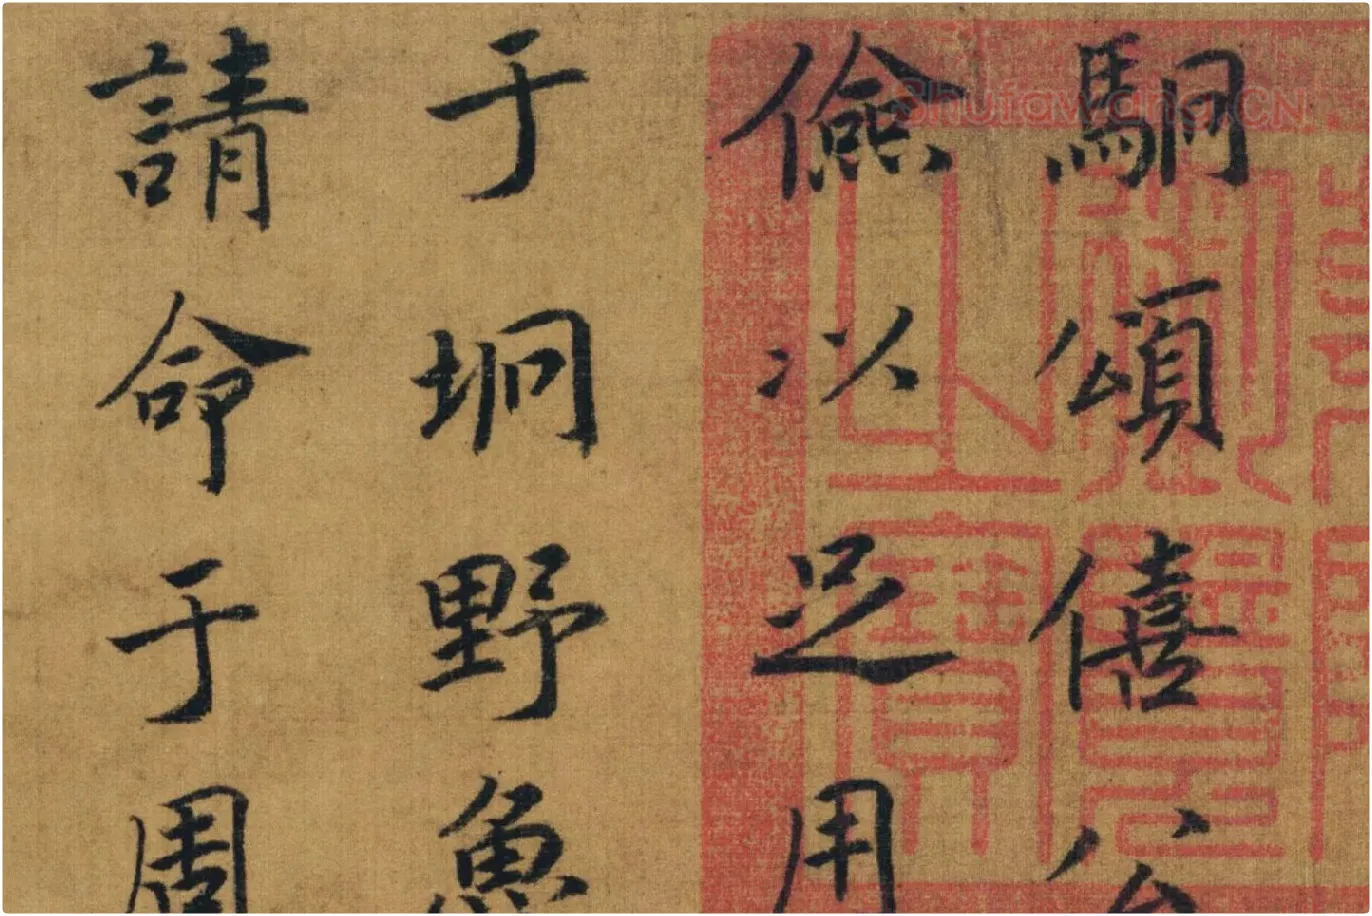 駉頌僖公
儉以足用
于坰野魚
請命于周
Shufawang.CN